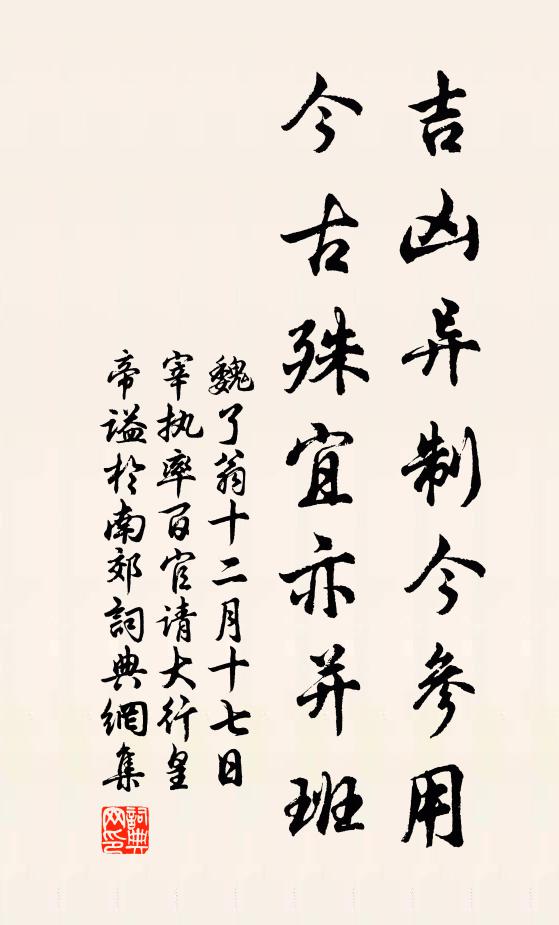 吉凶异制今参用
今古殊宜亦并班
魏了翁十二月十七日
宰执率百官请大行皇
帝谥於南郊詞典網集
詞典網印